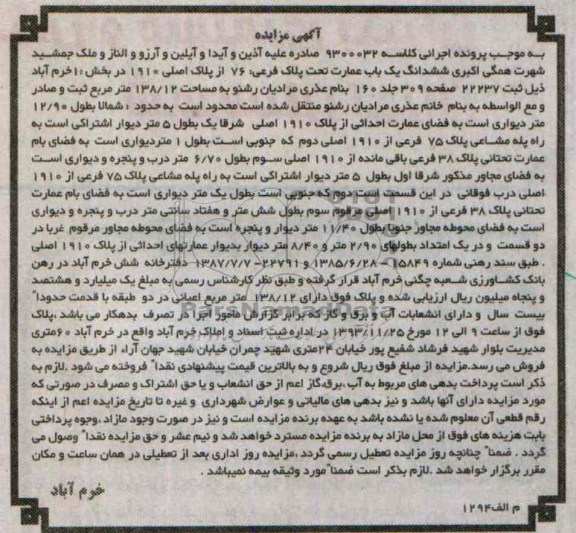 آگهی مزایده
به موجب پرونده اجرائی کلاسه ۹۳۰۰۰۳۲ صادره علیه آذین و آیدا و آیلین و آرزو و الناز و ملک جمشید
شهرت همگی اکبری ششدانگ یک باب عمارت تحت پلاک فرعی: ۷۶ از پلاک اصلی ۱۹۱۰ در بخش:۱خرم آباد
ذیل ثبت ۲۲۲۳۷ صفحه ۳۰۹جلد ۱۶۰ بنام عذری مرادیان رشنو به مساحت ۱۳۸/۱۲ متر مربع ثبت و صادر
و مع الواسطه به بنام خانم عذری مرادیان رشنو منتقل شده است محدود است به حدود : شمالا بطول ۱۲/۹۰
متر دیواری است به فضای عمارت احداثی از پلاک ۱۹۱۰ اصلی شرقا یک بطول ۵ متر دیوار اشتراکی است به
راه پله مشاعی پلاک ۷۵ فرعی از ۱۹۱۰ اصلی دوم که جنوبی است بطول ۱ متردیواری است به فضای بام
عمارت تحتانی پلاک ۳۸ فرعی باقی مانده از ۱۹۱۰ اصلی سوم بطول ۶/۷۰ متر درب و پنجره و دیواری است
به فضای مجاور مذکور شرقا اول بطول ۵ متر دیوار اشتراکی است به راه پله مشاعی پلاک ۷۵ فرعی از ۱۹۱۰
اصلی درب فوقانی در این قسمت است دوم که جنوبی است بطول یک متر دیواری است به فضای بام عمارت
تحتانی پلاک ۳۸ فرعی از ۱۹۱۰ اصلی مرقوم سوم بطول شش متر و هفتاد سانتی متر درب و پنجره و دیواری
است به فضای محوطه مجاور جنوبا بطول ۱۱/۴۰ متر دیوار و پنجره است به فضای محوطه مجاور مرقوم غربا در
دو قسمت و در یک امتداد بطولهای ۲/۹۰ متر و ۸/۴۰ متر دیوار بدیوار عمارتهای احداثی از پلاک ۱۹۱۰ اصلی
. طبق سند رهنی شماره ۱۵۸۴۹- ۱۳۸۵/۶/۲۸ و ۲۲۷۹۱- ۱۳۸۷/۷/۷ دفترخانه شش خرم آباد در رهن
بانک کشاورزی شعبه چگنی خرم آباد قرار گرفته و طبق نظر کارشناس رسمی به مبلغ یک میلیارد و هشتصد
و پنجاه میلیون ریال ارزیابی شده و پلاک فوق دارای ۱۳۸/۱۲ متر مربع اعیانی در دو طبقه با قدمت حدودا"
بیست سال و دارای انشعابات آب و برق و گاز که برابر گزارش مامور اجرا در تصرف بدهکار می باشد ،پلاک
فوق از ساعت ۹ الی ۱۲ مورخ ۱۳۹۳/۱۱/۲۵ در اداره ثبت اسناد و املاک خرم آباد واقع در خرم آباد ۶۰متری
مدیریت بلوار شهید فرشاد شفیع پور خیابان ۲۴متری شهید چمران خیابان شهید جهان آراء از طریق مزایده به
فروش می رسد.مزایده از مبلغ فوق ریال شروع و به بالاترین قیمت پیشنهادی نقدا" فروخته می شود .لازم به
ذکر است پرداخت بدهی های مربوط به آب،برق،گاز اعم از حق انشعاب و یا حق اشتراک و مصرف در صورتی که
مورد مزایده دارای آنها باشد و نیز بدهی های مالیاتی و عوارض شهرداری و غیره تا تاریخ مزایده اعم از اینکه
رقم قطعی آن معلوم شده یا نشده باشد به عهده برنده مزایده است و نیز در صورت وجود مازاد ،وجوه پرداختی
بابت هزینه های فوق از محل مازاد به برنده مزایده مسترد خواهد شد و نیم عشر و حق مزایده نقدا" وصول می
گردد . ضمنا" چنانچه روز مزایده تعطیل رسمی گردد ،مزایده روز اداری بعد از تعطیلی در همان ساعت و مکان
مقرر برگزار خواهد شد .لازم بذکر است ضمنا"مورد وثیقه بیمه نمیباشد .
خرم آباد
م الف۱۲۹۴